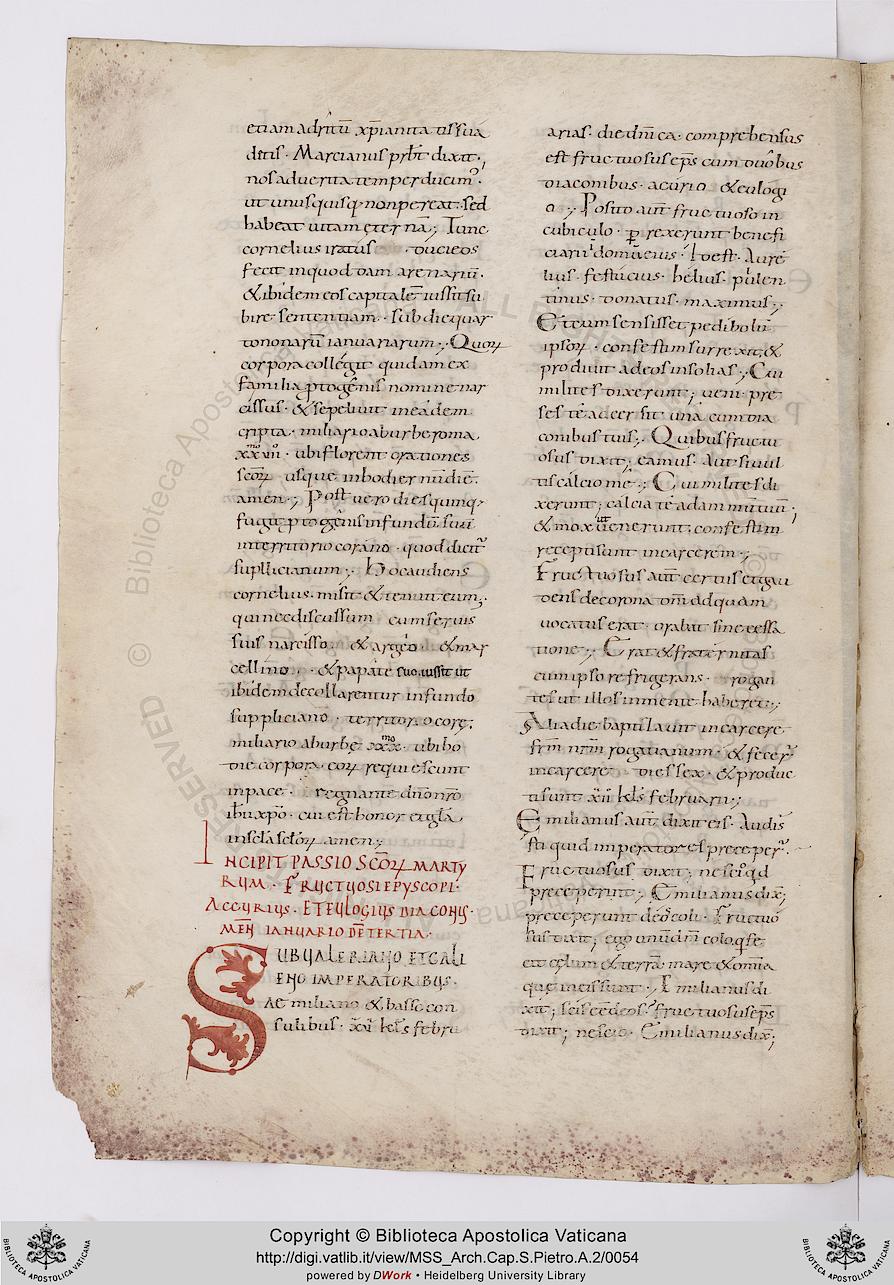 etiam adritū xp̄ianita tis suā
dētis · Marcianus prb̄t dixit ·,
nos aduerita tem perducim᾽ ·
ut unus quisq· non pereat · sed
habeat uitam ęter nā ;, Tunc
cornelius iratus ducieos
fecit inquod dam arenariū ·
& ibidem eos capitalē iussit su
bire · sententiam · sub die quar
to nonarū ianuariarum ·, Quoꝝ
corpora collégit quidam ex
familia ꝓtogēnis nomine nar
cissus · & sepeliuit ineádem
cripta · miliario ab urbe roma
ubi florent orationes
sc̄oꝝ usque inhodier nūdiē
amen ·, Post uero dies quinq·
fugit ꝓtogēnis infundū suū
interritorio corano · quod dicit᾽
supllicianum ;, Hoc audiens
cornelius · misit & tenuit eum ;·
qui nec discussum cum seruis
suis narcisso · & argéo · & mar
cellino · & papáte suo iussit ut
ibidem decollarentur in fundo
suppliciano · territorio corę ·
miliario ab urbe xxx᾽ᵐᵒ ubi ho
die corpora · eoꝝ requiescunt
in pace · regnante dn̄o nr̄o
ih̄u xp̄o · cui est honor et gl̄a
in sc̄la sc̄l̄oꝝ amen ;
INCIPIT PASSIO SC̄OꝜ MARTY
RUM · FRUCTUOSI EPYSCOPI ·
ACCURIUS · ET EULOGIUS DIACONIS ·
MEN̄ IANUARIO DĒ TERTIA ·
SUB UALERIANO ET GALI
ENO IMPERATORIBUS ·
Ae miliano & basso con
sulibus · xīi kl̄s febru
arias · die dn̄ica · comprehensus
est fructuosus ep̄s cum duóbus
diaconibus · acurio & eulogi
o ;, Posito aut̄ fructuoso in
cubiculo · ꝑrexerunt benefi
ciarii domū eius · hoc est · Aurę
lius · festúcius · hélius · púlen
tinus · donatus · maximus ;,
Et cum sensisset pedibolū
ipsoꝝ · confestim surrexit · &
prodiuit ad eos insoleas ·, Cui
milites dixerunt ; ueni pre
ses té accersit una cum dia
conibus tuis ;, Quibus fructu
osus dixit ; eamus · Aut si uul
tis cálcio me ·, Cui milites di
xerunt ; cálcia té ad animum ·,
& mox ut uenerunt · confestim
recepti sunt in carcerem ·,
Fructuosus aut̄ certus et gau
dens de corona dn̄i ad quam
uocatus erat · orabat sine cessa
tione ·, Erat & fratérnitas
cum ipso refrigerans · rogan
tes ut illos in mente haberet ·,
Alia die baptizauit in carcere
fr̄m nr̄m rogatianum · & fecer᾽
in carcere · dies sex · & produc
ti sunt xīi kl̄s februarii ;,
Emilianus aut̄ dixit eis · Audis
sti quid imperatores preceper᾽ ·
Fructuosus dixit ; nescio qd
preceperunt ;, Emilianus dix̄ ;
preceperunt deos coli · Fructuo
sus dixit ; ego unū dm̄ colo qſe
cit cęlum & terrā mare & omnia
quę in eis sunt ·, Emilianus di
xit ; scis eē deos · fructuosus ep̄s
dixit ; nescio · Emilianus dix̄ ;
Copyright © Biblioteca Apostolica Vaticana
http://digi.vatlib.it/view/MSS_Arch.Cap.S.Pietro.A.2/0054
powered by DWork • Heidelberg University Library